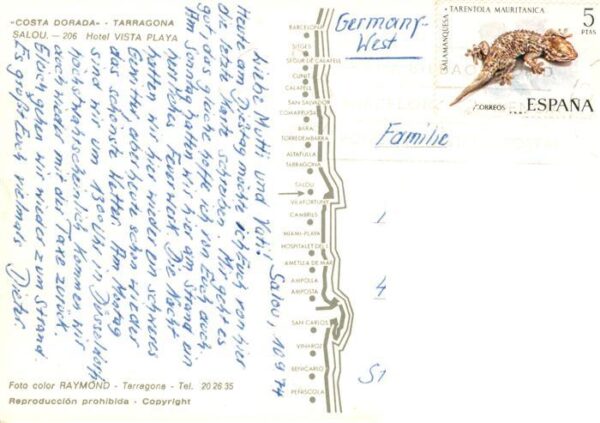 «COSTA DORADA» - TARRAGONA
SALOU. — 206 Hotel VISTA PLAYA
Salou, 10.9.74
Liebe Mutti und Vati!
Heute am Dienstag möchte ich Euch von hier
die letzte Karte schreiben. Mir geht es
gut, das gleiche hoffe ich von Euch auch.
Am Sonntag hatten wir hier am Strand ein
Feuerwerk. Die Nacht
hatten wir hier wieder ein schweres
Gewitter, aber heute schon wieder
das schönste Wetter. Am Montag
sind wir um 1300 Uhr in Düsseldorf
höchstwahrscheinlich kommen wir
auch wieder mit der Taxe zurück
Gleich gehen wir wieder zum Strand.
Es grüßt Euch vielmals Dieter.
Foto color RAYMOND - Tarragona - Tel. 20 26 35
Reproducción prohibida - Copyright
BARCELONA
SITGES
SEGUR DE CALAFELL
CUNIT
CALAFELL
SAN SALVADOR
COMARRUGA
BARA
TORREDEMBARRA
ALTAFULLA
TARRAGONA
SALOU
VILAFORTUNY
CAMBRILS
MIAMI-PLAYA
HOSPITALET DE I.
AMETLLA DE MAR
AMPOLLA
AMPOSTA
SAN CARLOS
VINAROZ
BENICARLO
PEÑISCOLA
Germany-
West
Familie
SALAMANQUESA - TARENTOLA MAURITANICA
5
PTAS
CORREOS ESPAÑA